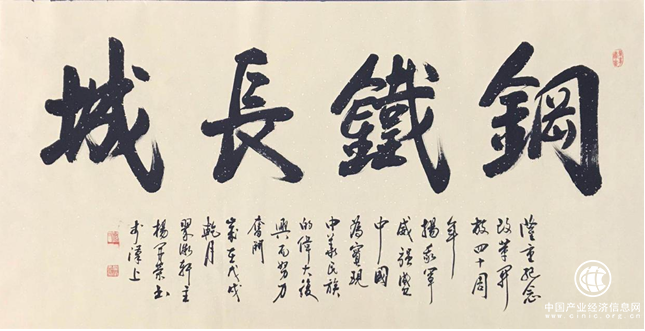 鋼鐵長城
隆重纪念
改革開
放四十周
年
揚我軍
威強盛
中國
為實現
中華民族
的偉大復
興而努力
奮鬥
歲在戊戌
月
軒主
楊军榮书
上
中国产业经济信息网
www.cinic.org.cn